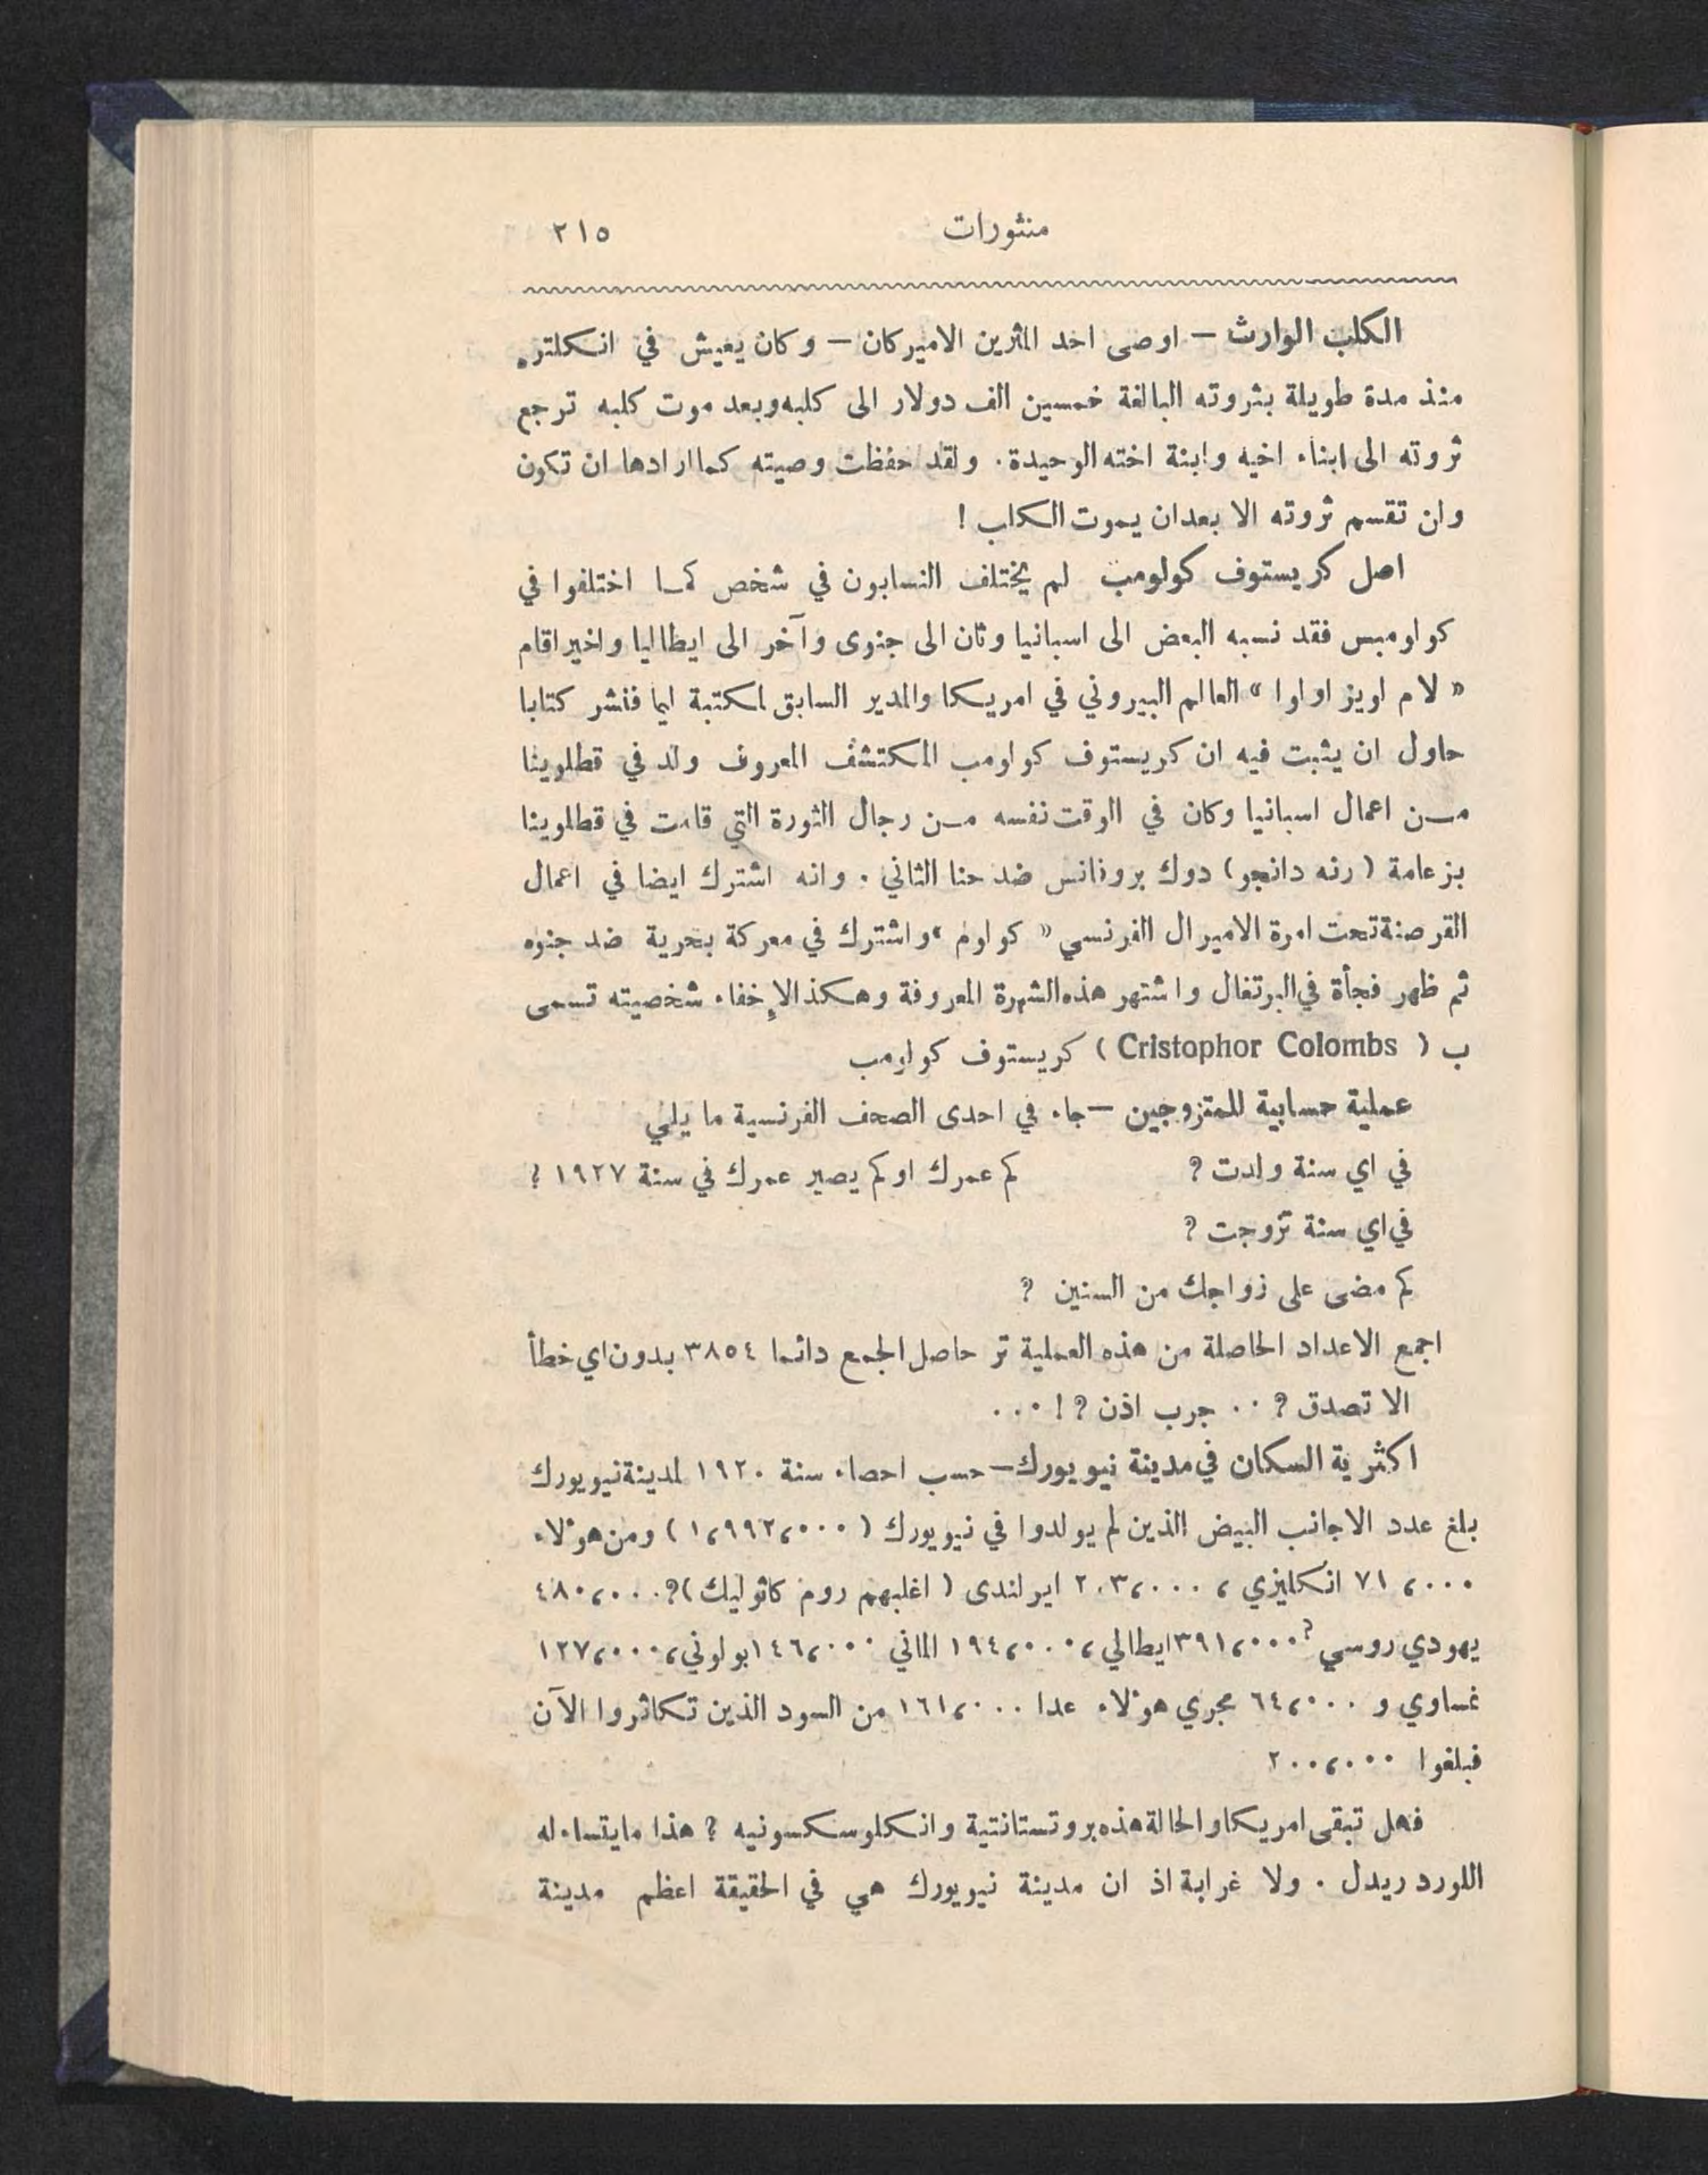 منثورات ٢١٥
الكلب الوارث — اوصى احد المثرين الاميركان — وكان يعيش في انكلتره
منذ مدة طويلة بثروته البالغة خمسين الف دولار الى كلبه وبعد موت كلبه ترجع
ثروته الى ابناء اخيه وابنة اخته الوحيدة. ولقد حفظت وصيته كما ارادها ان تكون
وان تقسم ثروته الا بعدان يموت الكلب !
اصل كريستوف كولومب لم يختلف النسابون في شخص كما اختلفوا في
كولومبس فقد نسبه البعض الى اسبانيا وثان الى جنوى وآخر الى ايطاليا واخير اقام
« لام اويز اولوا » العالم البيروني في امريكا والمدير السابق لمكتبة ليما فنشر كتابا
حاول ان يثبت فيه ان كريستوف كولومب المكتشف المعروف ولد في قطلوينا
من اعمال اسبانيا وكان في الوقت نفسه من رجال الثورة التي قامت في قطلوينا
بزعامة ( رنه دانجو ) دوك بروفانس ضد حنا الثاني . وانه اشترك ايضا في اعمال
القرصنة تحت امرة الاميرال الفرنسي « كولوم » واشترك في معركة بحرية ضد جنوه
ثم ظهر فجأة في البرتغال واشتهر هذه الشهرة المعروفة وهكذا لإخفاء شخصيته تسمى
ب ( Cristophor Colombs ) كريستوف كولومب
عملية حسابية للمتزوجين — جاء في احدى الصحف الفرنسية ما يلي
في اي سنة ولدت ? كم عمرك او كم يصير عمرك في سنة ١٩٢٧ ?
في اي سنة تزوجت ?
كم مضى على زواجك من السنين ?
اجمع الاعداد الحاصلة من هذه العملية تر حاصل الجمع دائما ٣٨٥٤ بدون اي خطأ
الا تصدق ? .. جرب اذن ? ! ...
اكثرية السكان في مدينة نيويورك — حسب احصاء سنة ١٩٢٠ لمدينة نيويورك
بلغ عدد الاجانب البيض الذين لم يولدوا في نيويورك ( ١،٩٩٢،٠٠٠ ) ومن هؤلاء
٧١،٠٠٠ انكليزي ، ٢٠٣،٠٠٠ ايرلندى ( اغلبهم روم كاثوليك ) ? ٤٨٠،٠٠٠
يهودي روسي ? ٣٩١،٠٠٠ ايطالي ، ١٩٤،٠٠٠ الماني ١٤٦،٠٠٠ بولوني ، ١٢٧،٠٠٠
نمساوي و ٦٤،٠٠٠ مجري هؤلاء عدا ١٦١،٠٠٠ من السود الذين تكاثروا الآن
فبلغوا ٢٠٠،٠٠٠
فهل تبقى امريكا والحالة هذه بروتستانتية وانكلوسكسونيه ? هذا ما يتساءله
اللورد ريدل . ولا غرابة اذ ان مدينة نيويورك هي في الحقيقة اعظم مدينة